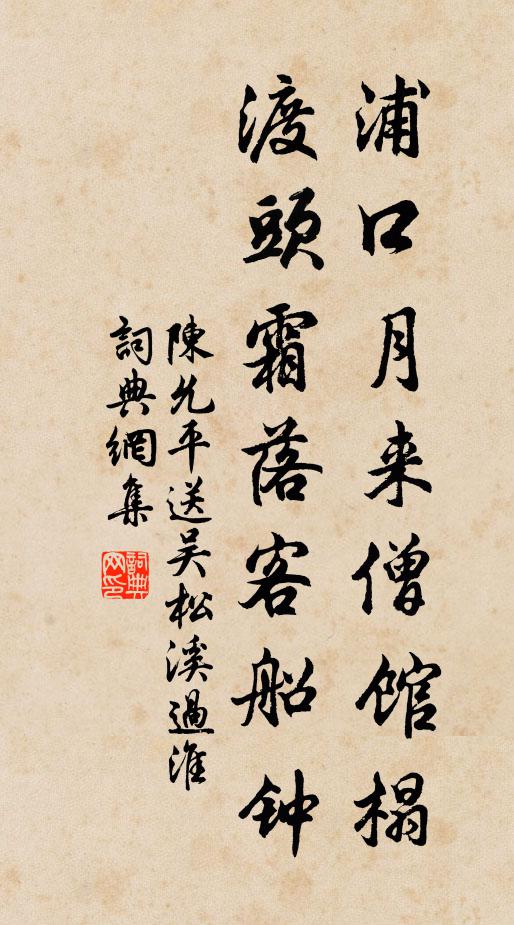 浦口月来僧馆榻
渡頭霜落客船钟
陳允平送吴松溪過淮
詞典網集
詞典网印